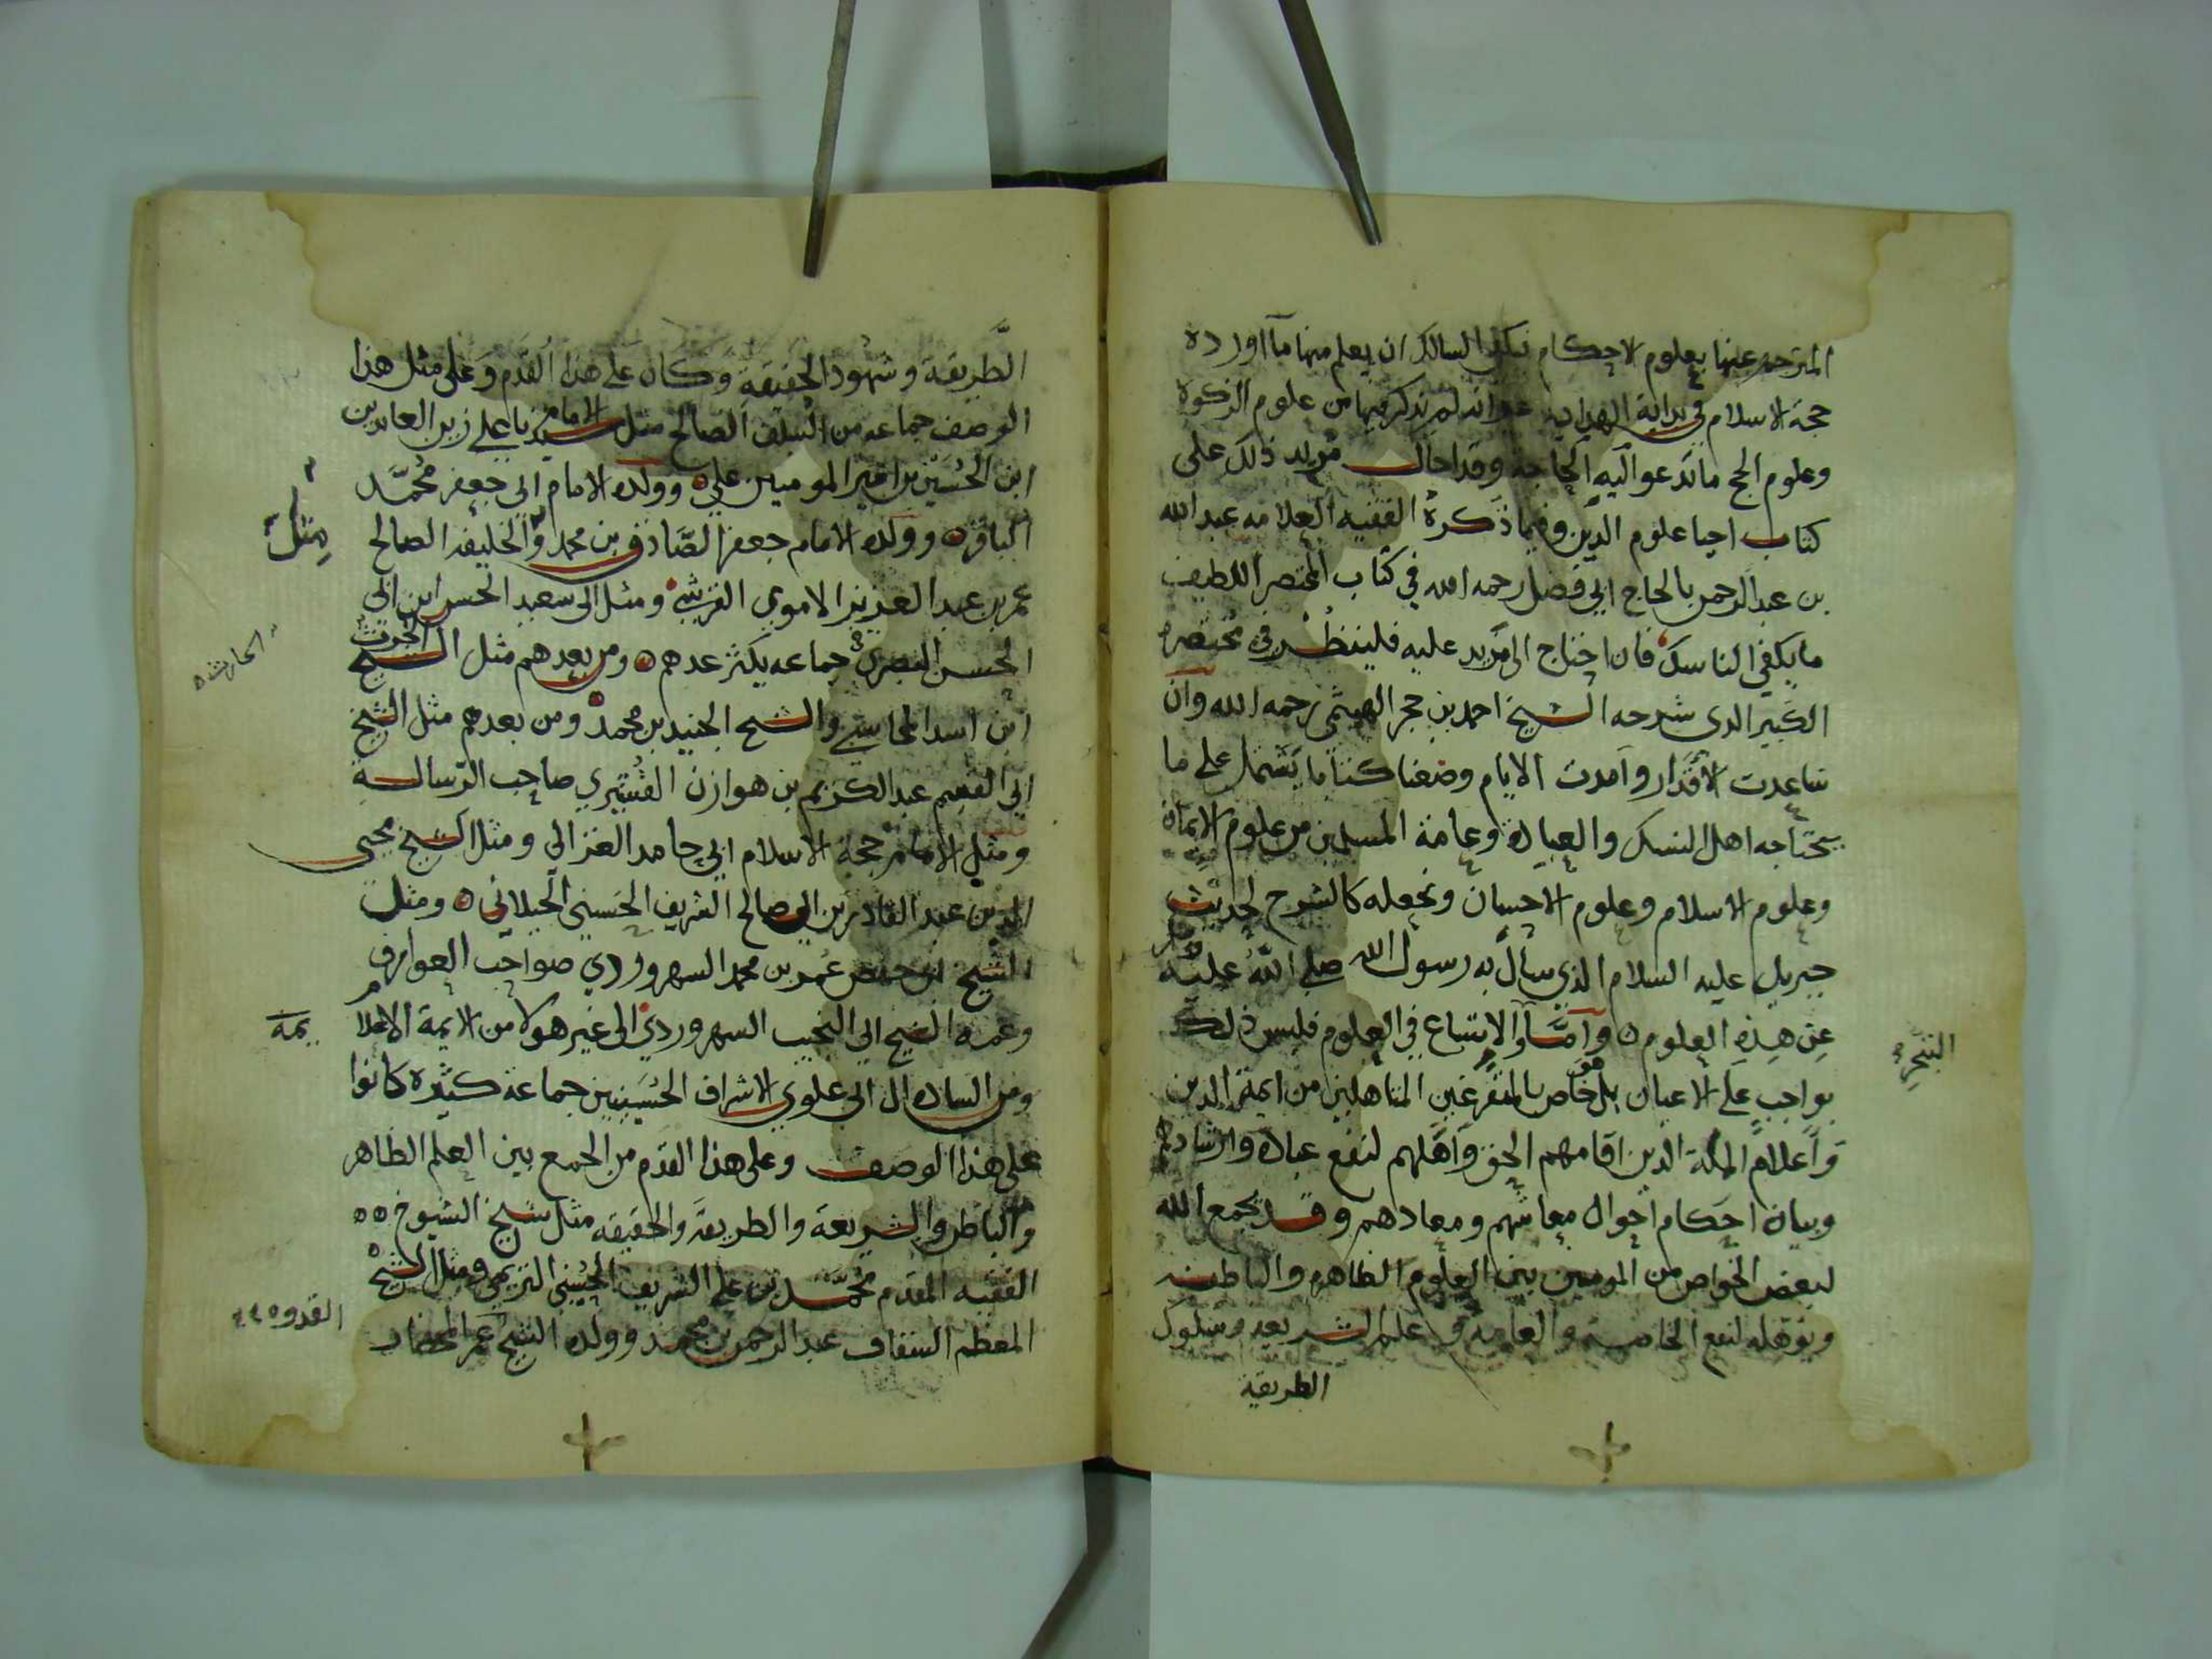 المترجم عنها بعلوم الاحكام يكفي السالك ان يعلم منها ما اورده
حجة الاسلام في بداية الهداية غير انه لم يذكر فيها من علوم الزكوة
وعلوم الحج ما تدعو اليه الحاجة وقد احال مريد ذلك على
كتاب احيا علوم الدين وفيما ذكره الفقيه العلامه عبد الله
بن عبد الرحمن بالحاج ابي فضل رحمه الله في كتاب المختصر اللطيف
ما يكفي الناسك فان احتاج الى مزيد عليه فلينظر في مختصره
الكبير الذي شرحه الشيخ احمد بن حجر الهيتمي رحمه الله وان
ساعدت الاقدار وامدت الايام وضعنا كتابا يشتمل على ما
يحتاجه اهل النسك والعباده وعامة المسلمين من علوم الايمان
وعلوم الاسلام وعلوم الاحسان ونجعله كالشرح لحديث
جبريل عليه السلام الذي سأل به رسول الله صلى الله عليه
عن هذه العلوم ٥ وامّا والاتساع في العلوم فليس ذلك
التبحر
بواجب على الاعيان بل هو خاص بالمتفرغين المتاهلين من ايمة الدين
واعلام الملة الذين اقامهم الحق واهلهم لنفع عباده وارشادهم
وبيان احكام احوال معاشهم ومعادهم وقد يجمع الله
لبعض الخواص من المومنين بين العلوم الظاهره والباطنه
ويؤهله لنفع الخاصة والعامة في علم الشريعه وسلوك
الطريقة
الطَّريقة وشهود الحقيقة وكان على هذا القدم وعلى مثل هذا
الوصف جماعه من السلف الصالح مثل الامام سيدنا علي زين العابدين
ابن الحسين بن امير المومنين علي ٥ وولده الامام ابي جعفر محمّد
الباقر ٥ وولده الامام جعفر الصّادق بن محمد و الخليفه الصالح
مثل
عمر بن عبد العزيز الاموي القرشي ومثل ابي سعيد الحسن ابن ابي
الحسن البصري جماعه يكثر عدهم ٥ ومن بعدهم مثل الشيخ الحرث
الحارث ٥
ابن اسد المحاسبي والشيخ الجنيد بن محمد ومن بعدهم مثل الشيخ
ابي القسم عبد الكريم بن هوازن القشيري صاحب الرّسالة
ومثل الامام حجة الاسلام ابي حامد الغزالي ومثل الشيخ محيي
الدين عبد القادر بن ابي صالح الشريف الحسني الجيلاني ٥ ومثل
الشيخ ابي حفص عمر بن محمد السهروردي صواحب العوارف
وعمه الشيخ ابي النجيب السهروردي الى غير هولا من الايمة الاعلام
يمة
ومن الساده ال ابي علوي الاشراف الحسينيين جماعة كثيرة كانوا
على هذا الوصف وعلى هذا القدم من الجمع بين العلم الظاهر
والباطن والشريعة والطريقة والحقيقه مثل شيخ الشيوخ ٥٥
الفقيه المقدم محمّد بن علي الشريف الحسيني التريمي ومثل الشيخ
القدوه
المعظم السقاف عبد الرحمن بن محمد وولده الشيخ عمر المحضار